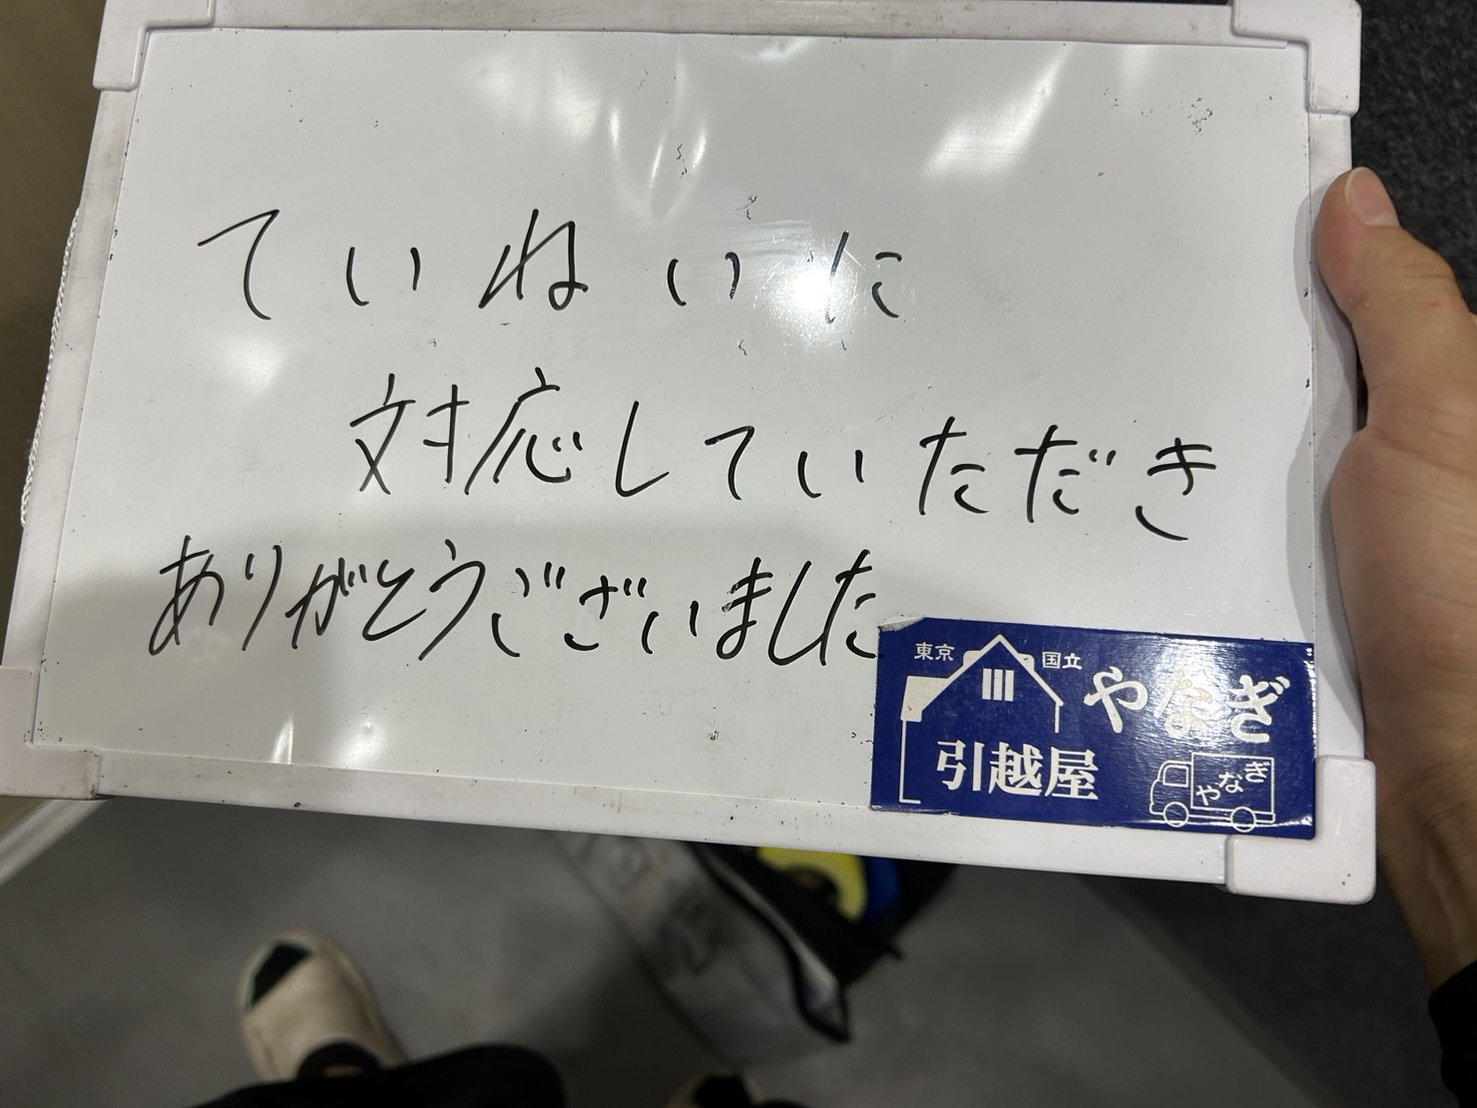 ていねいに
対応していただき
ありがとうございました
東京 国立
やなぎ
引越屋
やなぎ